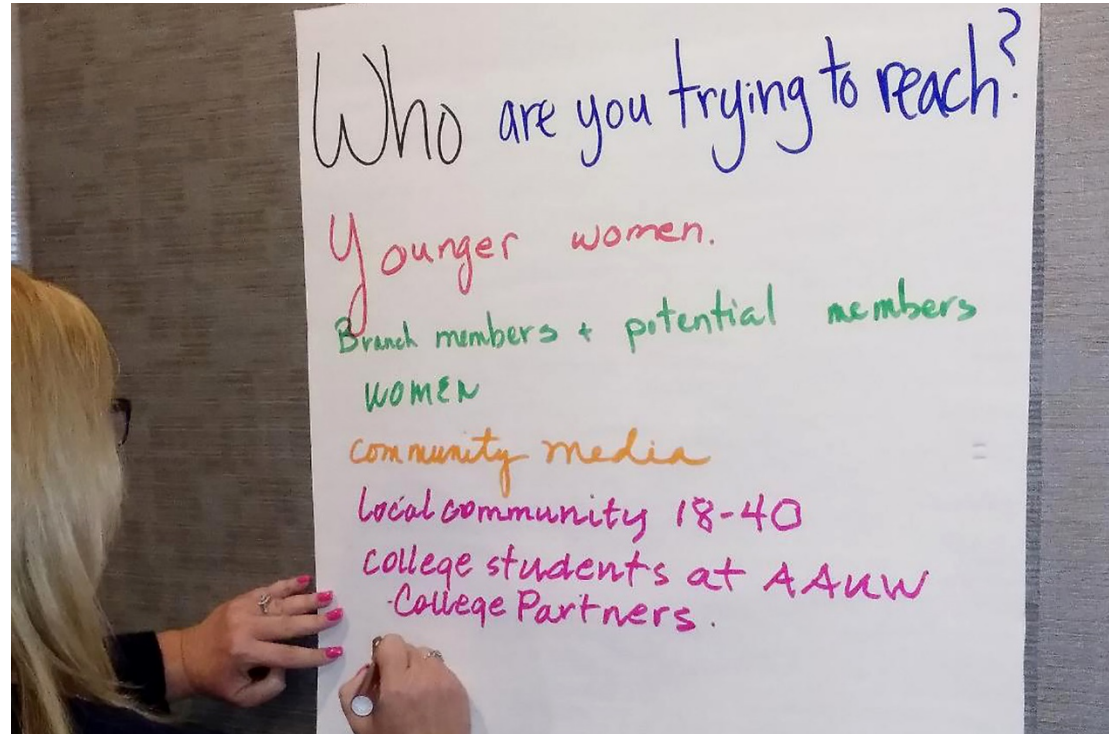 Who are you trying to reach?
Younger women.
Branch members + potential members
WOMEN
community media
local community 18-40
college students at AAUW
-College Partners.